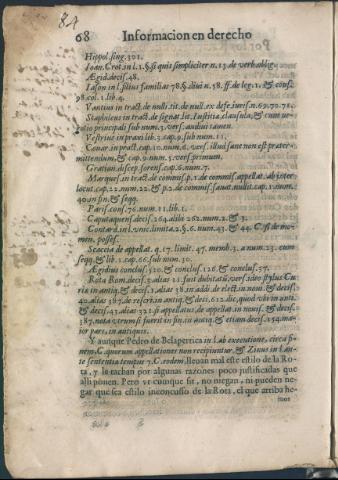 84
68 Informacion en derecho
Hippol. sing. 301.
Ioan. Crot. in l. 1. §. si quis simpliciter n. 13. de verb. oblig.
Ægid. decis. 48.
Iason in l. filius familias 78. §. diui n. 58. ff. de leg. 1. & cons.
98. col. 1. lib. 4.
Vantius in tract. de nulli. tit. de null. ex defe. iuris n. 69. 70. 71.
Staphileus in tract. de signat. lit. Iustitia, clausula, & cum
principali sub num. 3. vers. aut in tamen.
Vestrius in praxi lib. 3. cap. 9. sub num. 11.
Conar. in pract. cap. 10. num. 6. vers. illud sane non est prætermittendum,
& cap. 9. num. 5. vers. primum.
Gratian. discep. forens. cap. 6. num. 7.
Marques. in tract. de commis. p. 1. de commis. appellat. ab interlocut.
cap. 2. num. 22. & p. 2. de commis. caus. nullit. cap. 1. num.
40. in fin. & seqq.
Paris. cons. 76. num. 11. lib. 1.
Caputaquens. decis. 264. alias 262. num. 2. & 3.
Contard. in l. vnic. limita. 2. §. 6. num. 43. & 44. C. si de momen.
posses.
Scaccia de appellat. q. 17. limit. 47. memb. 3. a num. 23. cum
seqq. & lib. 1. cap. 66. sub num. 30.
Ægidius conclus. 510. & conclus. 126. & conclus. 37.
Rota Rom. decis. 3. alias 21. fuit dubitatu, vers. ideo stylus Curia
in antiq. & decis. 1. alias 38. in addi. de rect. in nou. & decis.
40. alias 387. de rescr. in antiq. & decis. 612. dic. quod vbi in anti.
& decis. 43. alias 321. si appellatus de appellat. in nouis. & decis.
387. nota vtrum si fuerit in fin. in antiq. & etiam decis. 154. maior
pars, in antiquis.
Y aunque Pedro de Belapertica in l. ab executione, circa finem,
C. quorum appellationes non recipiuntur, & Zinus in l. ante
sententiæ tempus 7. C. eodem, lleuan mal este estilo de la Rota,
y le tachan por algunas razones poco justificadas que
alli ponen. Pero vt cumque sit, no niegan, ni pueden negar
que sea estilo inconcusso de la Rota, el que arriba he-